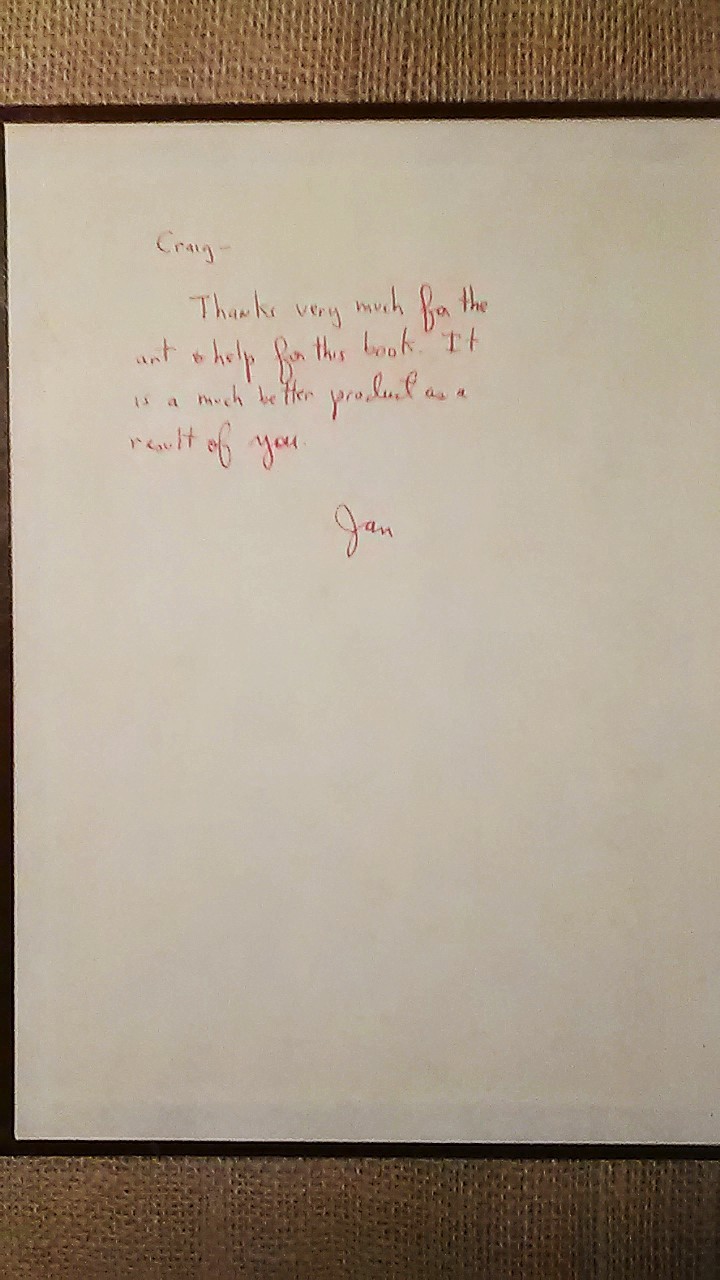 Craig-
Thanks very much for the
art & help for this book. It
is a much better product as a
result of you.
Jan